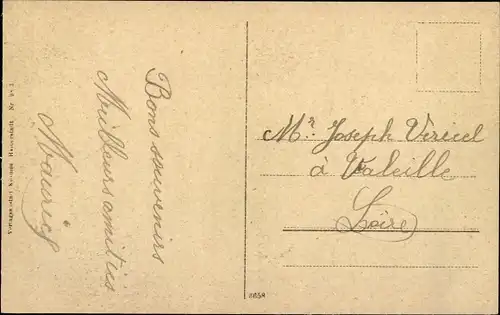 Bons souvenirs
Meilleurs amitiés
Mauricy
Mr. Joseph Vericel
à Valeille
Loire
8658